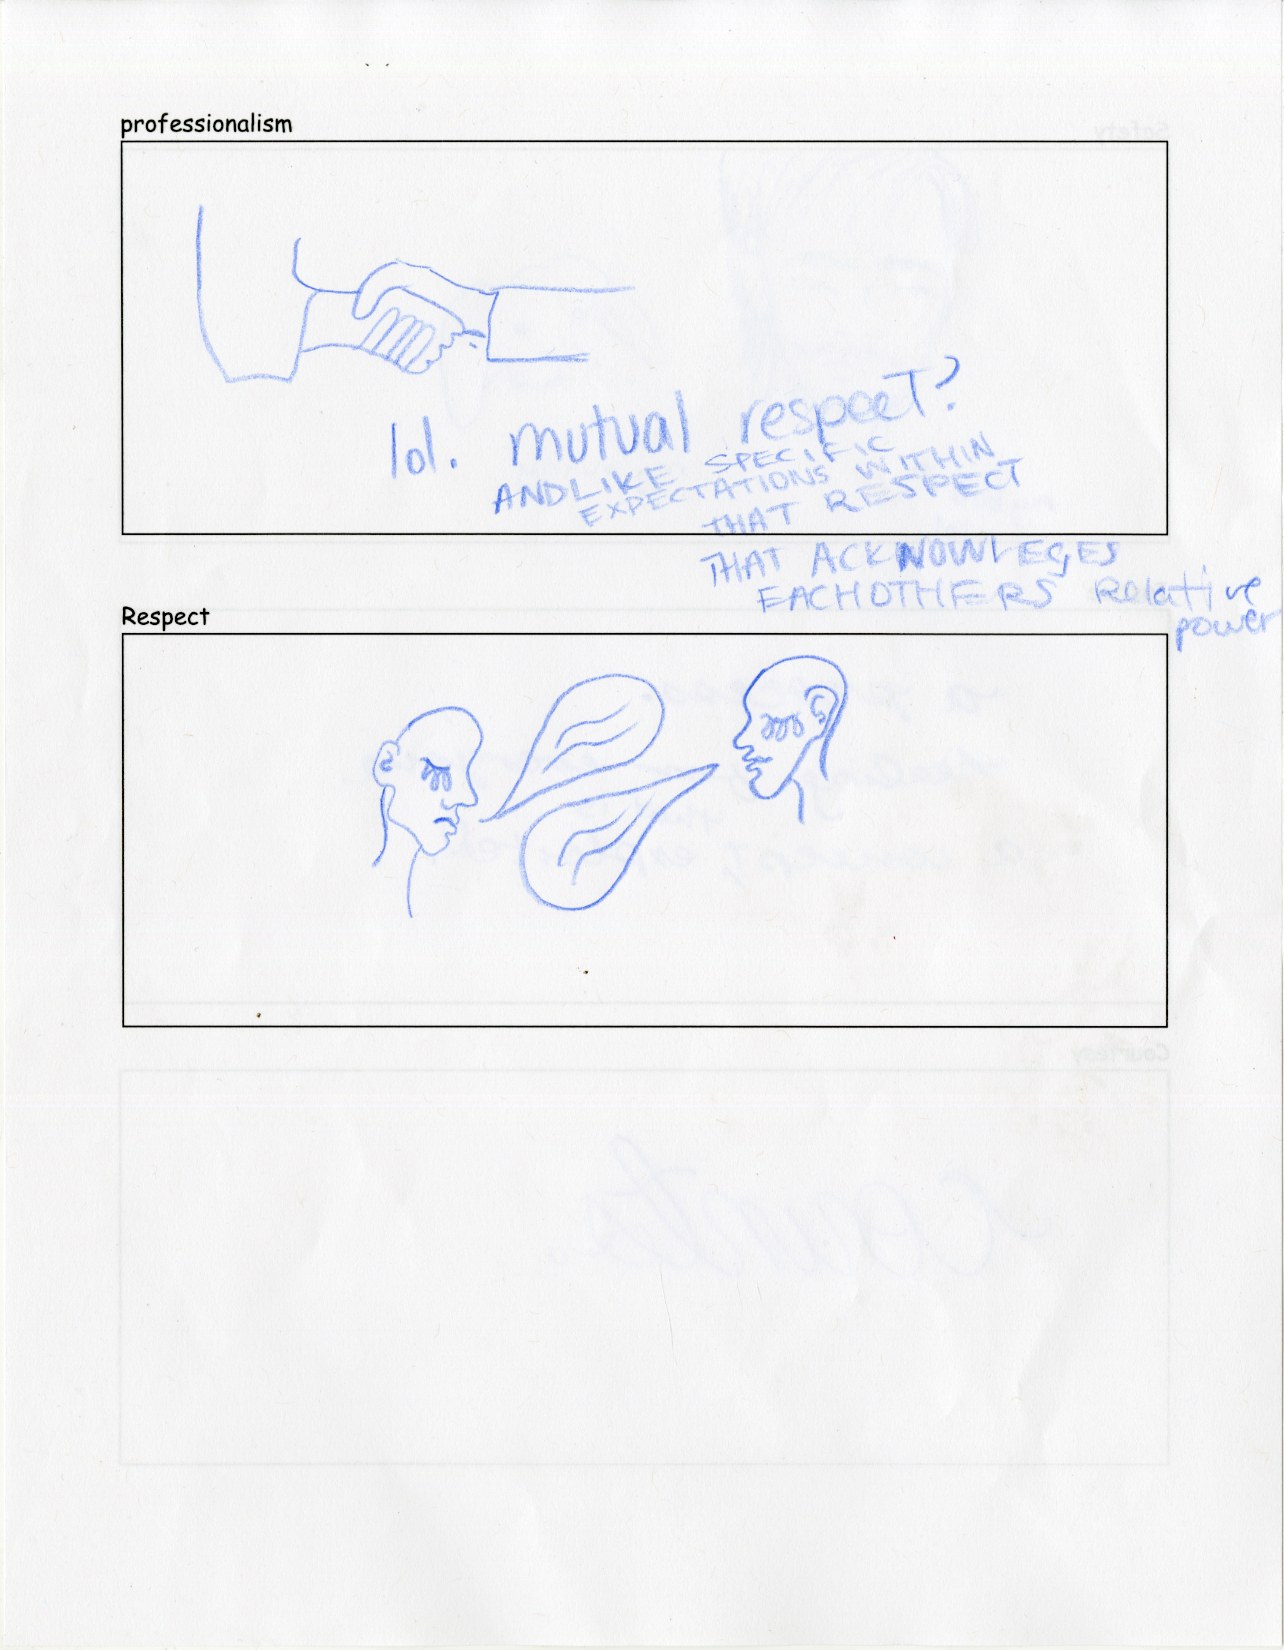 professionalism
lol. mutual respect?
AND LIKE SPECIFIC
EXPECTATIONS WITHIN
THAT RESPECT
THAT ACKNOWLEGES
EACHOTHERS Relative
power
Respect